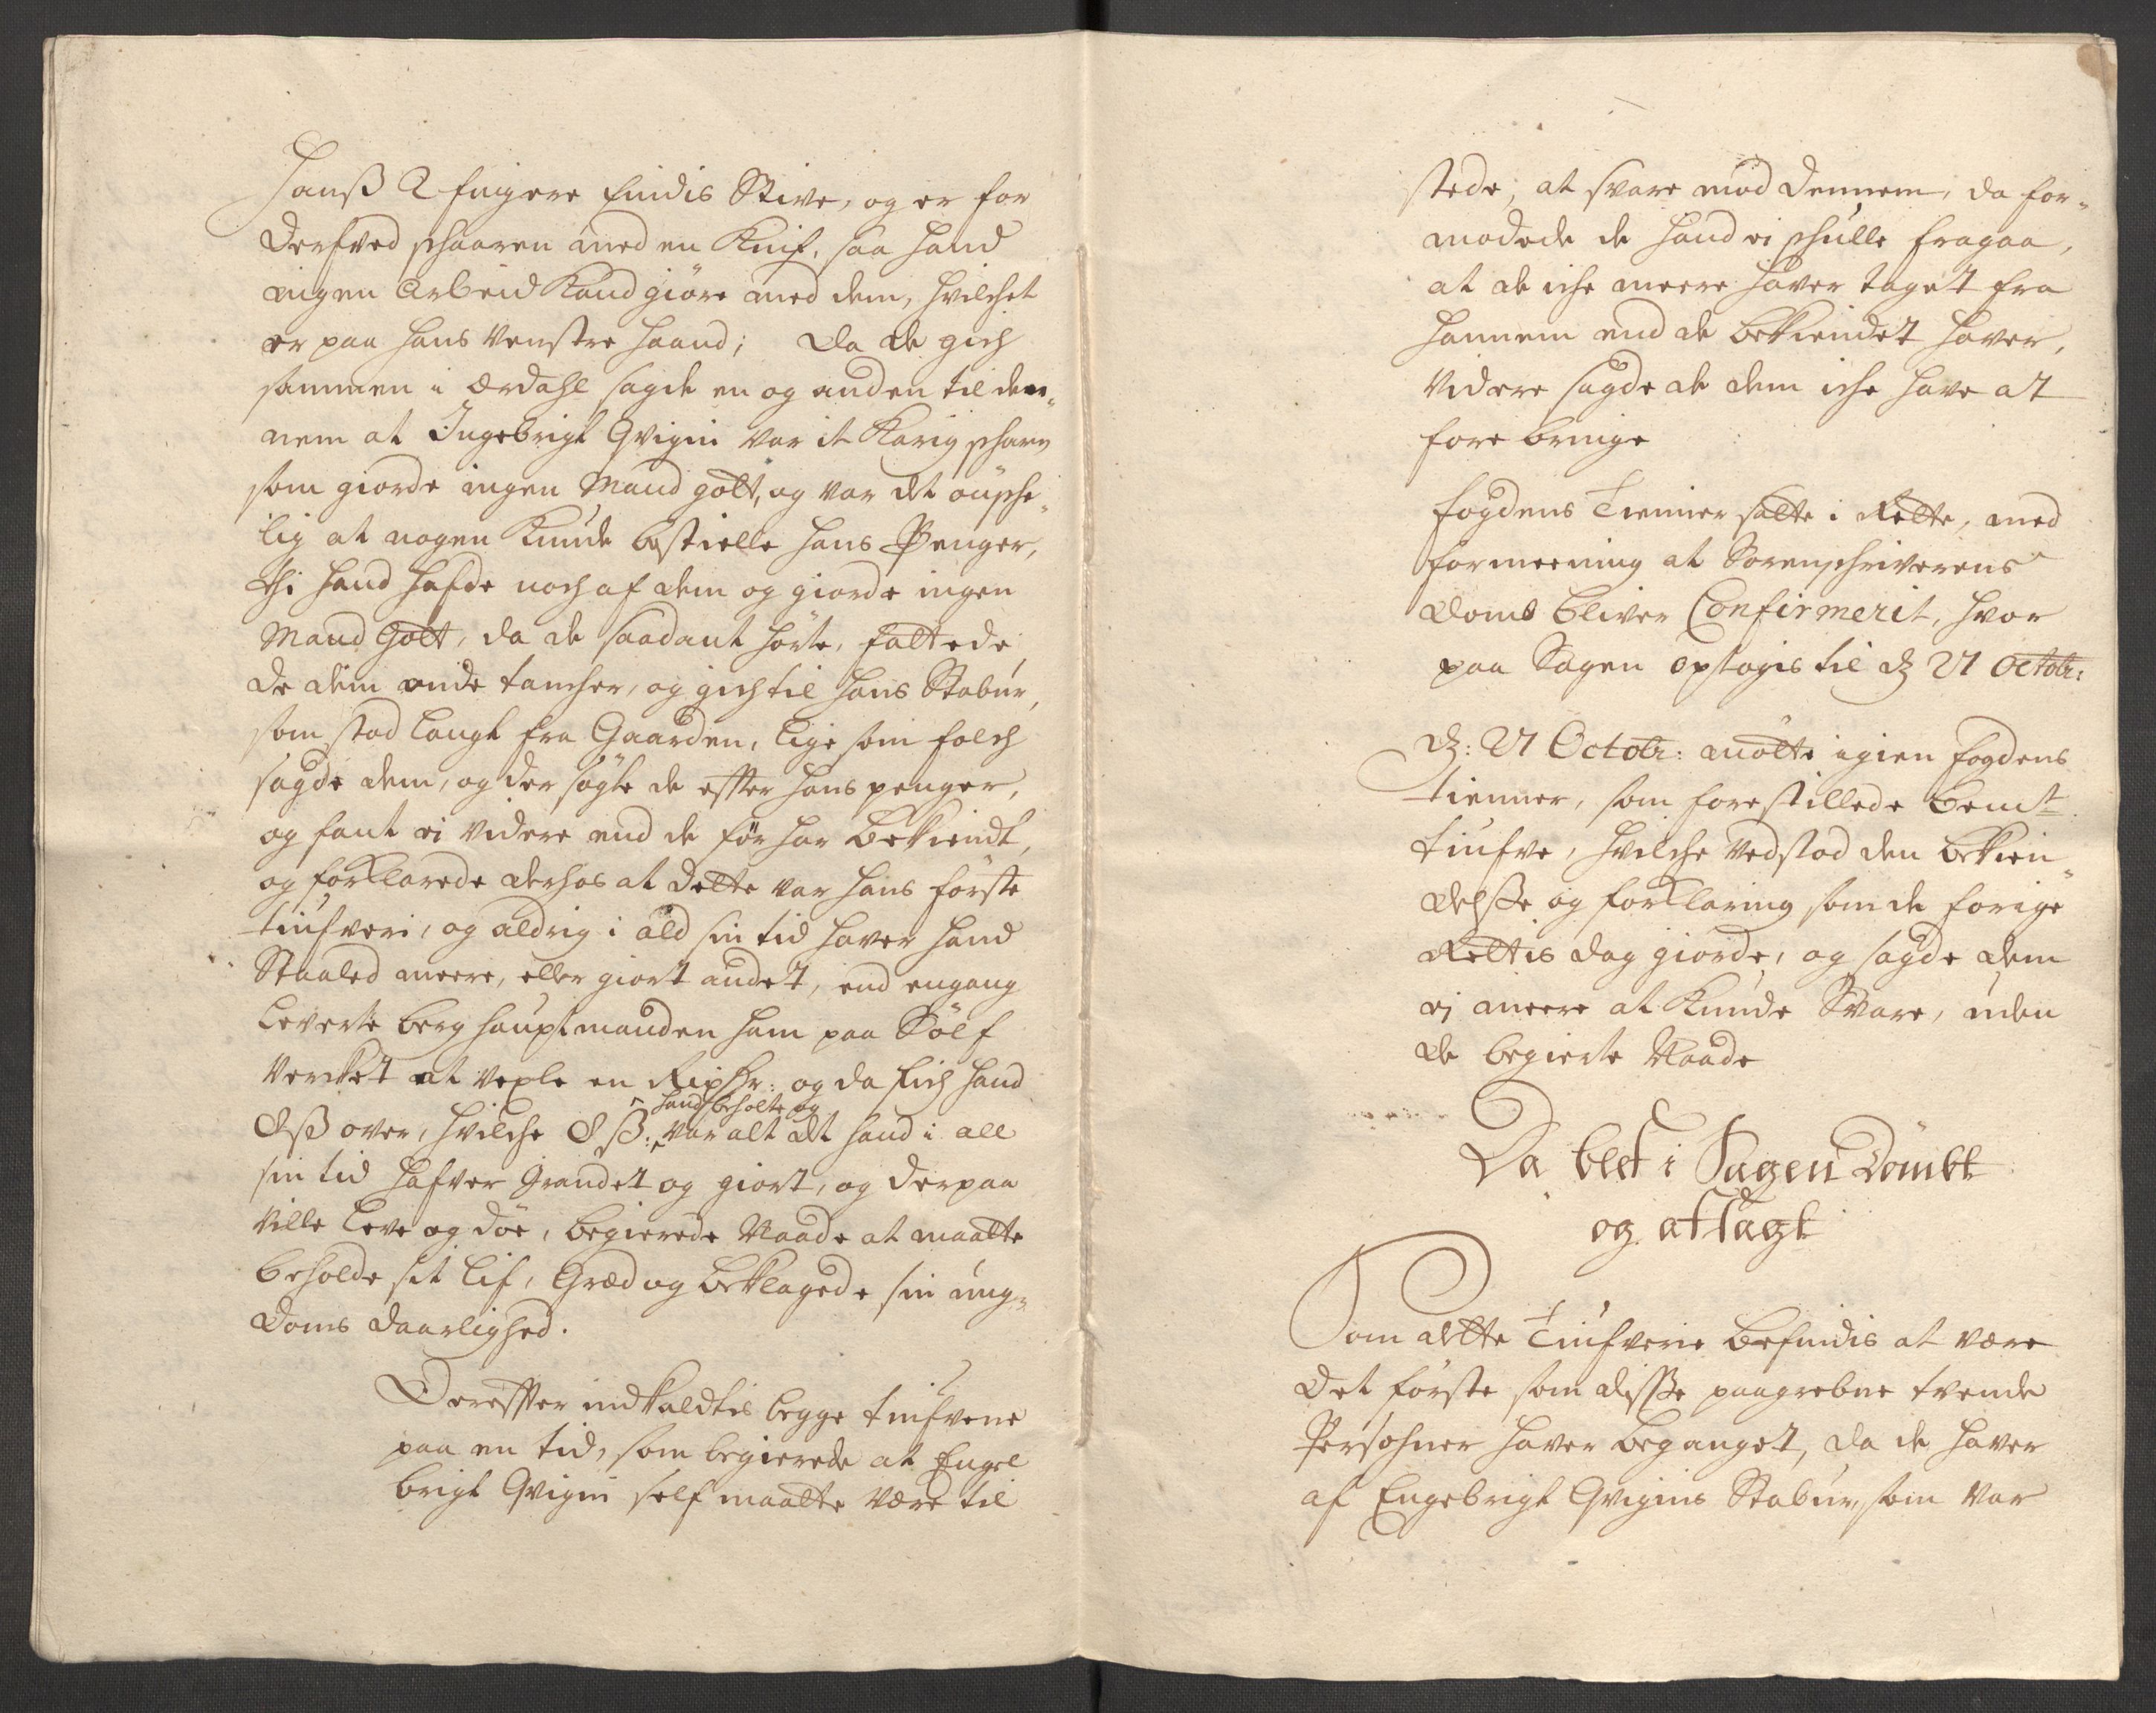 Hanß 2 fingere findis Stive, og er for
derfved schaaren med en Knif, saa hand
ingen arbeid Kand giöre med dem, hvilchet
er paa hans venstre haand; da de gich
sammen i Ordahl sagde en og anden til den„
nem at Ingebrigt Qvigni var it Karig scharn
som giorde ingen Mand gott, og var det önsche„
lig at nogen Kunde bestielle hans Penger,
thi hand hafde noch af dem og giorde ingen
Mand Gott, da de saadant hörte, fattede
de dem onde tancher, og gich til hans Stabur,
som stod langt fra Gaarden, lige som folch
sagde dem, og der sögte de efter hans penger,
og fant ei videre end de för har bekiendt,
og forklarede derhos at dette var hans förste
tiufveri, og aldrig i ald sin tid haver hand
Staaled meere, eller giort andet, end engang
leverte berghauptmanden ham paa Sölf
Verchet at vexle en Rixdr: og da fich hand
8 ß over, hvilche 8 ß: hand beholte og var alt det hand i all
sin tid hafver Grandet og giort, og derpaa
ville leve og döe, begierede Naade at maatte
beholde sit lif, Græd og beklagede sin ung„
doms daarlighed.
Derefter indkaldtes begge tiufvene
paa en tid, som begierede at Engel
brigt Qvigni self maatte være til
stede, at svare mod dennem, da for„
modede de hand ei schulle fragaa,
at de iche meere haver taget fra
hannem end de bekiendet haver,
videre sagde de dem iche have at
fore bringe
fogdens Tienner satte i Rette, med
formeening at Sorenschriverens
domb bliver Confirmerit, hvor
paa Sagen optogis til d 21 Octobr:
d: 21 Octobr: mötte igien fogdens
tienner, som forestillede bemte
tiufve, hvilche vedstod den bekien„
delsse og forklaring som de forige
Rettis dag giorde, og sagde dem
ei meere at Kunde Svare, uden
de begierte Naade
Da blef i Sagen Dömbt
og afsagt
Som dette Tiufverie befindis at være
det förste som disse paagrebne tvende
Persohner haver beganget, da de haver
af Engebrigt Qvignis Stabur, som var